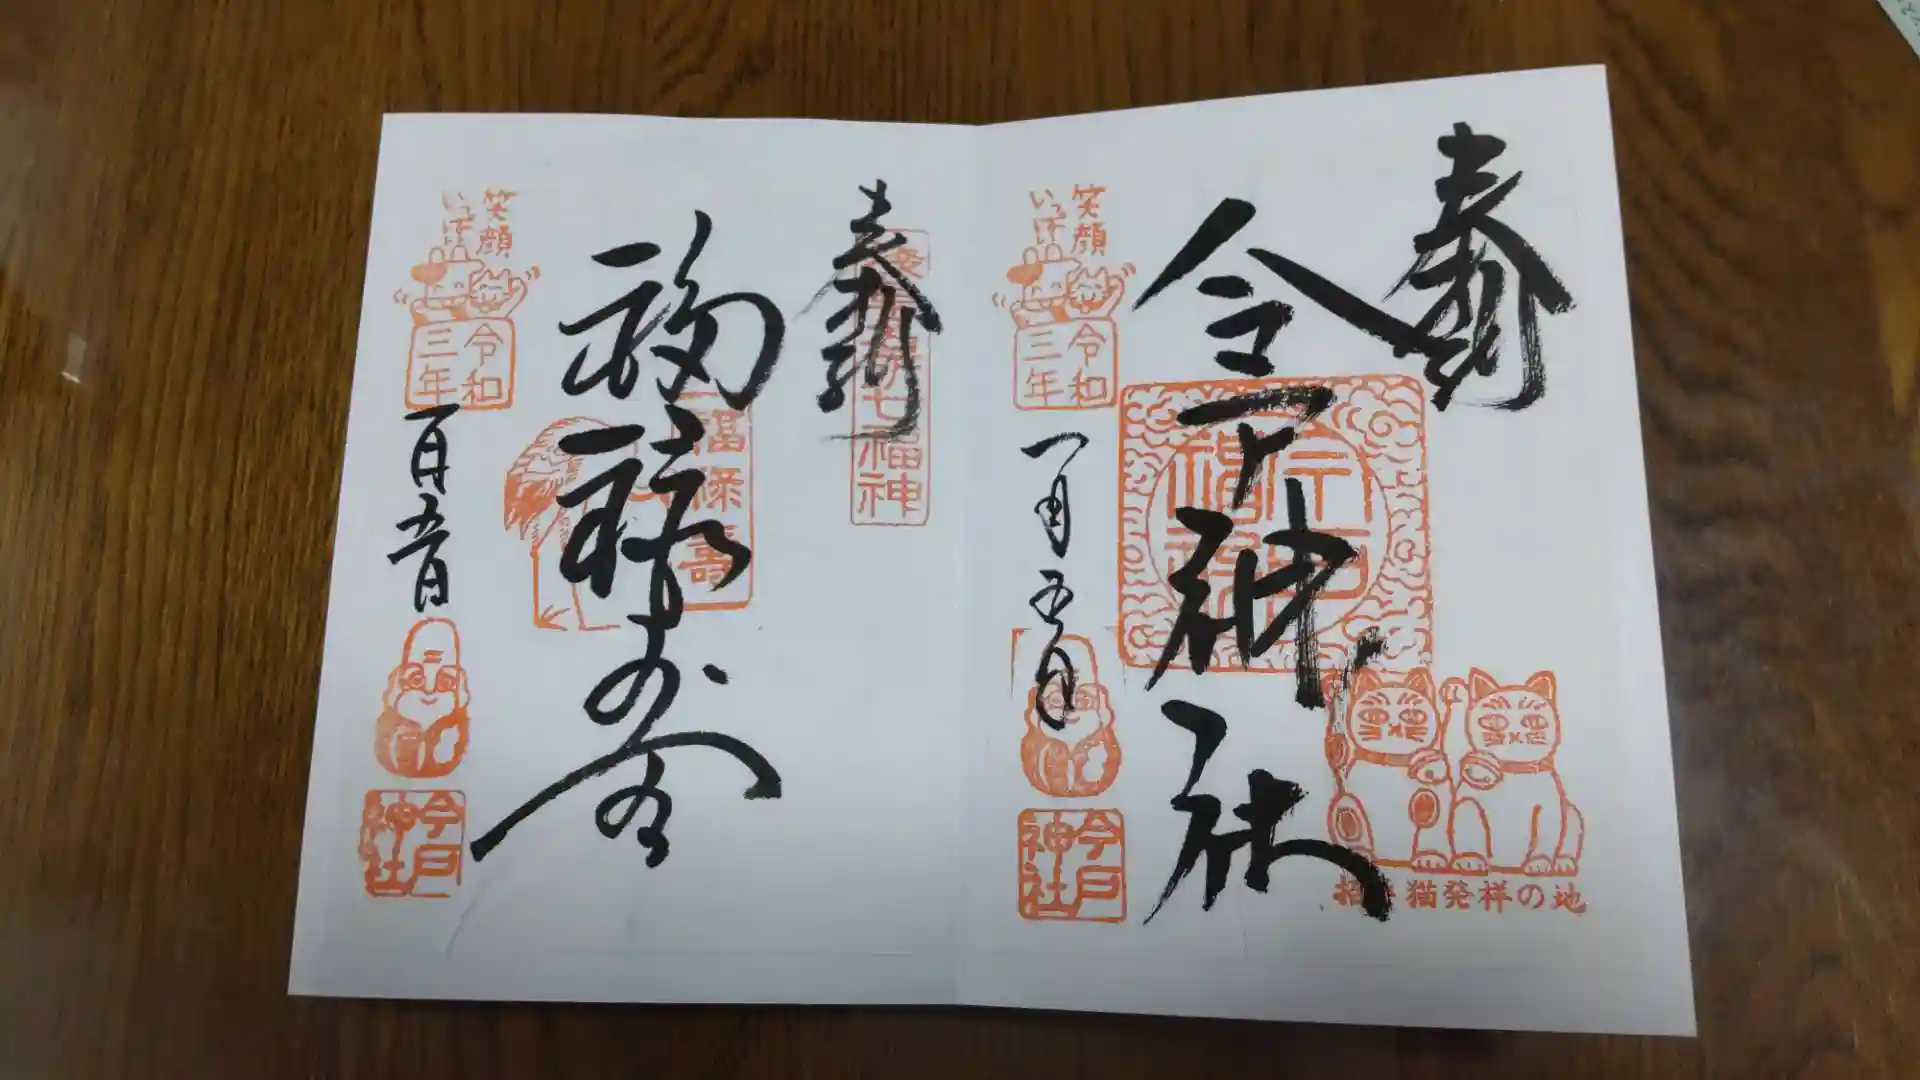 奉拝
今戸神社
今戸神社
招き猫発祥の地
笑顔
いっぱい
令和
三年
一月五日
今戸
神社
奉拝
浅草名所七福神
福禄寿
福禄壽
笑顔
いっぱい
令和
三年
一月五日
今戸
神社